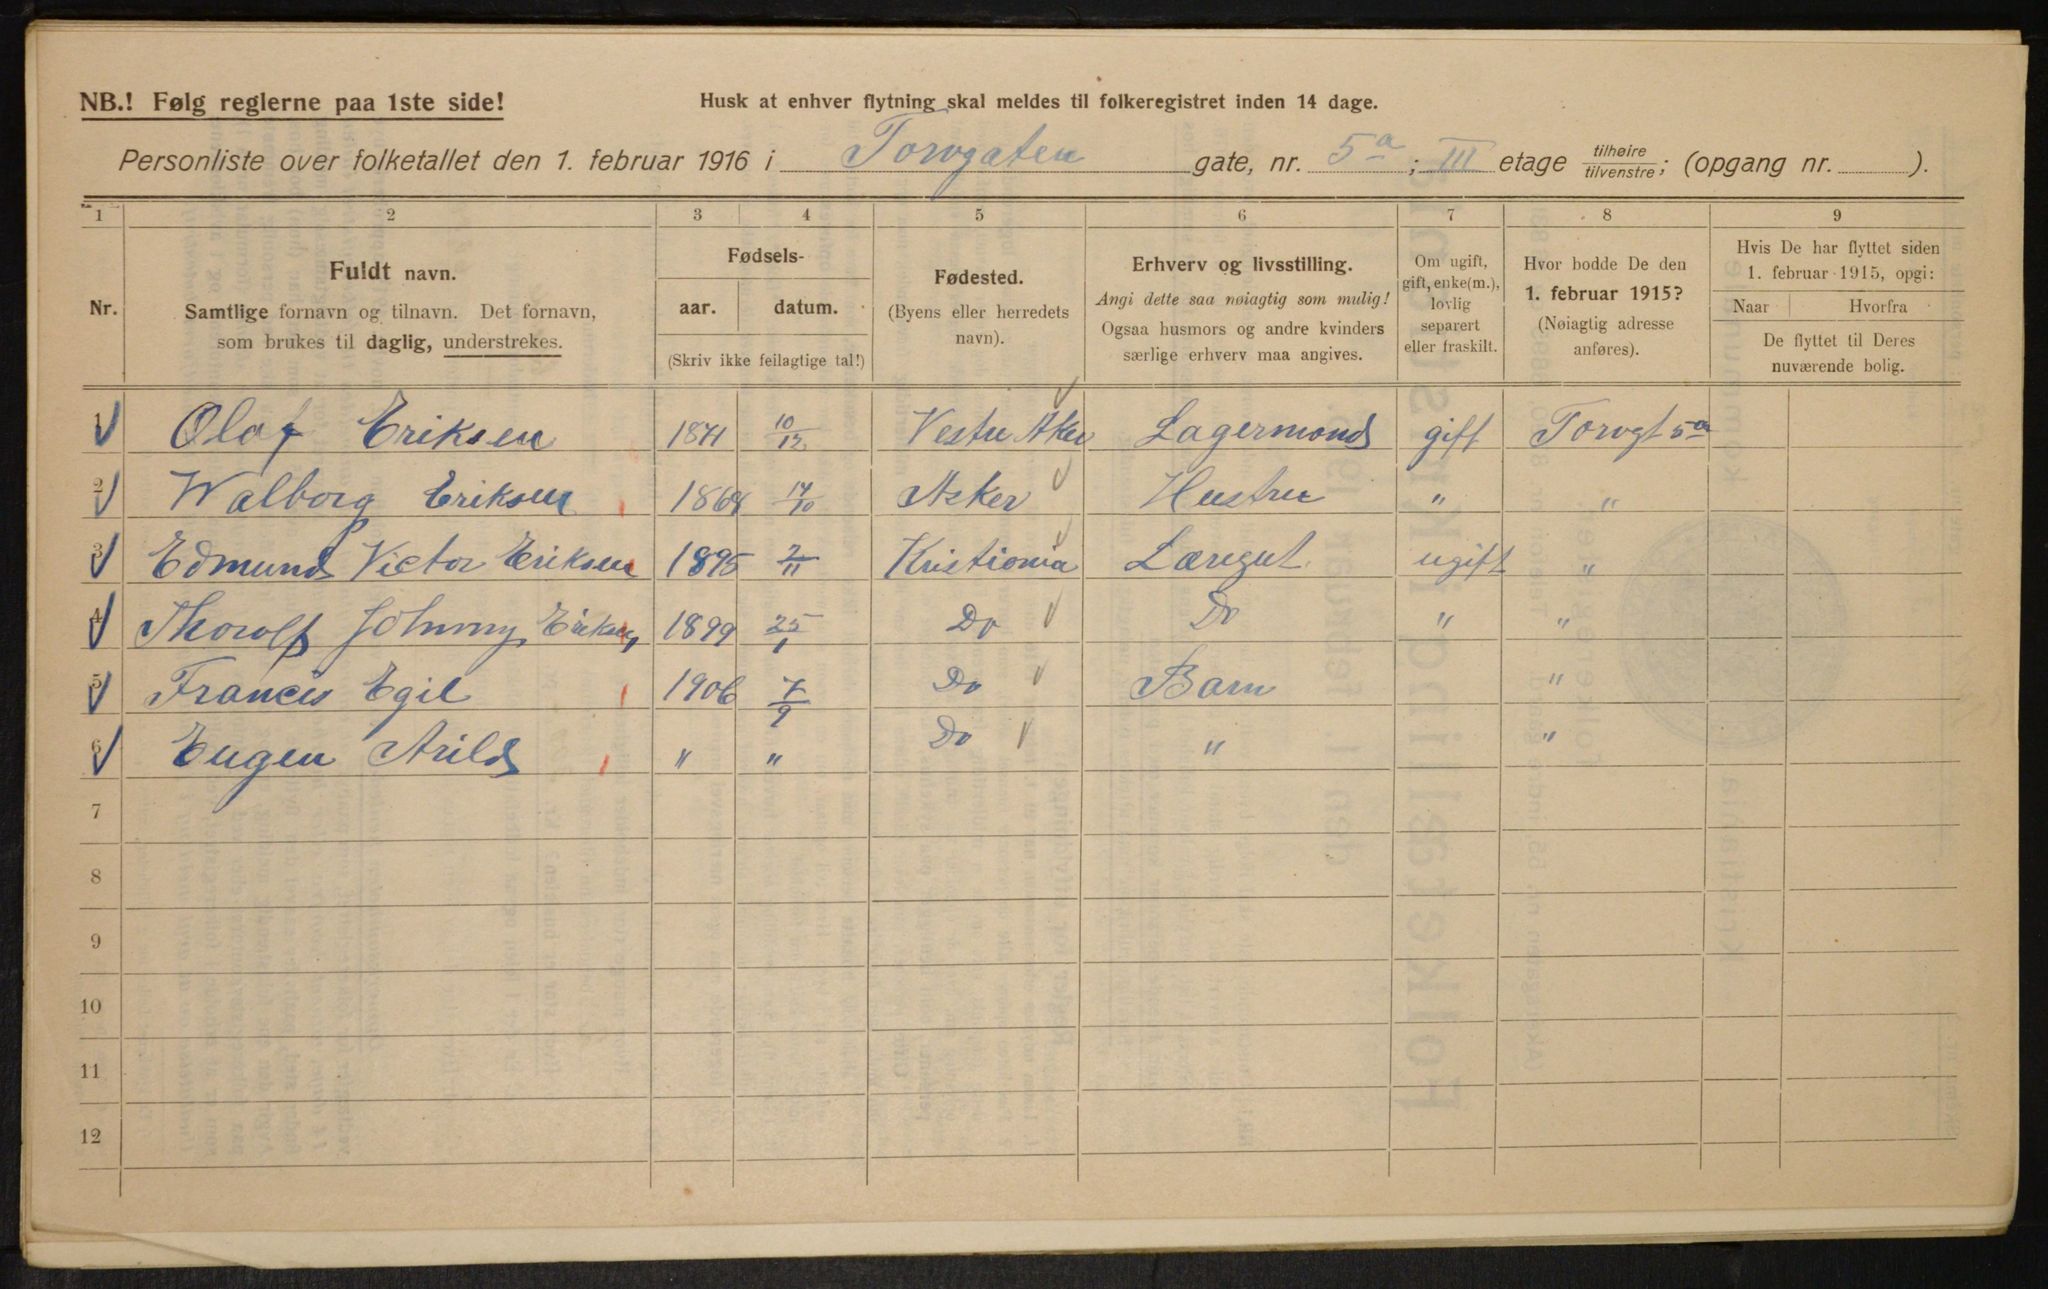 NB.! Følg reglerne paa 1ste side!
Husk at enhver flytning skal meldes til folkeregistret inden 14 dage.
Personliste over folketallet den 1. februar 1916 i Torvgaten gate, nr. 5a; III etage tilhøire/tilvenstre; (opgang nr. ).
1 2 3 4 5 6 7 8 9
Nr.
Fuldt navn.
Samtlige fornavn og tilnavn. Det fornavn,
som brukes til daglig, understrekes.
Fødsels-
aar. datum.
(Skriv ikke feilagtige tal!)
Fødested.
(Byens eller herredets
navn).
Erhverv og livsstilling.
Angi dette saa nøiagtig som mulig!
Ogsaa husmors og andre kvinders
særlige erhverv maa angives.
Om ugift,
gift, enke(m.),
lovlig
separert
eller fraskilt.
Hvor bodde De den
1. februar 1915?
(Nøiagtig adresse
anføres).
Hvis De har flyttet siden
1. februar 1915, opgi:
Naar Hvorfra
De flyttet til Deres
nuværende bolig.
1 Olaf Eriksen 1871 10/12 Vestre Aker Lagermand gift Torvgt 5a
2 Walborg Eriksen 17/10 Asker Hustru " "
3 Edmund Victor Eriksen 1895 2/11 Kristiania Læregut ugift "
4 Thorolf Johnny Eriksen 1899 25/1 Do Do " "
5 Francis Egil 1906 7/9 Do Barn "
6 Eugen Arild " " Do " "
7
8
9
10
11
12